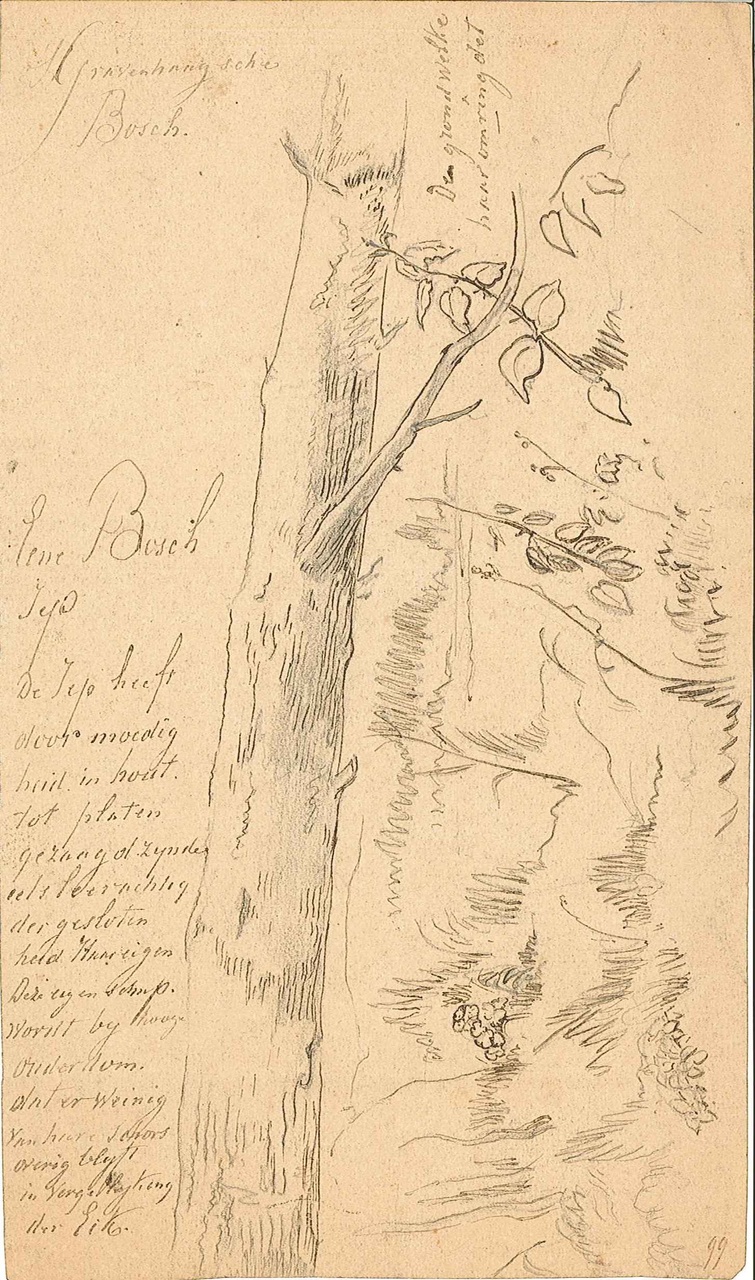 S Gravenhaagsche
Bosch.
De grond welke
haar omringdet
Eene Bosch
Iep
De Iep heeft
door moedig
heid in hout.
tot platen
gezaagd zynde
eels leerachtig
der gesloten
heid Haar eigen
Deze eigenschap.
Wordt by hooge
Ouderdom.
dat er weinig
Van hare schors
overig blyft
in Vergelyking
der Eik.
99